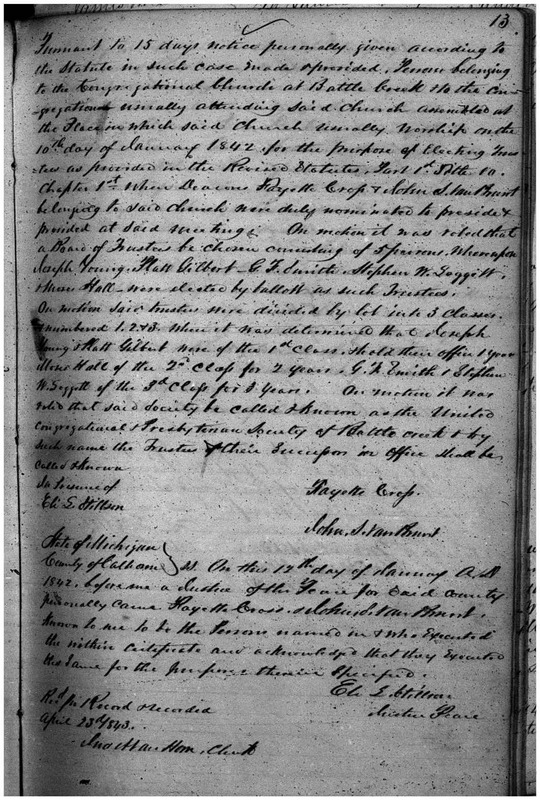 13
Pursuant to 15 days notice personally given according to
the Statute in such case made & provided, Persons belonging
to the Congregational Church at Battle Creek & to the Con-
-gregation usually attending said Church assembled at
the Place in which said Church usually Worship on the
10th day of January 1842, for the purpose of Electing Trus
-tees as provided in the Revised Statutes, Part 1st Title 10.
Chapter 1st When Deacons Fayette Cross & John S. Van Brunt
belonging to said Church were duly nominated to preside &
presided at said meeting. On motion it was voted that
a Board of Trustees be chosen consisting of 5 persons, Whereupon
Joseph Young, Platt Gilbert, G. F. Smith, Stephen W. Leggett
& Moses Hall were elected by ballott as such Trustees.
On motion said trustees were divided by lot into 3 Classes.
numbered 1.2.&3. when it was determined that Joseph
Young & Platt Gilbert were of the 1st Class, & hold their office 1 year
Moses Hall of the 2nd Class for 2 years. G. F. Smith & Stephen
W. Leggett of the 3d Class for 3 years. On motion it was
voted that said Society be called & known as the United
Congregational & Presbyterian Society of Battle Creek & by
such name the Trustees & their Successors in Office shall be
called & known
In Presence of
Eli L. Stillson
Fayette Cross.
John S. Van Brunt
State of Michigan
County of Calhoun } ss. On this 12th day of January A.D
1842. before me a Justice of the Peace for said County
personally came Fayette Cross & John S. Van Brunt,
known to me to be the Persons named in & who Executed
the within certificate and acknowledged that they Executed
the same for the purposes therein Specified.
Eli L. Stillson
Justice Peace
Recd for Record & recorded
April 23d 1843.
Jno A Van Horn, Clerk